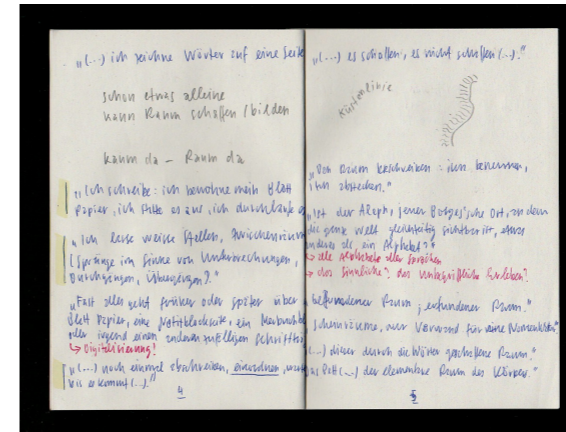 "(...) ich zeichne Wörter auf eine Seite
schon etwas alleine
kann Raum schaffen / bilden
kaum da – Raum da
"Ich schreibe: ich bewohne mein Blatt
Papier, ich fülle es aus, ich durchlaufe es
"Ich lasse weiße Stellen, Zwischenräume
(Sprünge im Sinne von Unterbrechungen,
Durchgängen, Übergängen)."
"Fast alles geht früher oder später über
Blatt Papier, eine Notizblockseite, ein
oder irgend einen anderen zufälligen
↳ Digitalisierung!
"(...) noch einmal abschreiben, einordnen,
bis es kommt (...)."
4
"(...) es schaffen, es nicht schaffen (...)."
Küstenlinie
"Den Raum beschreiben: ihn benennen,
ihn abstecken."
"Ist der Aleph, jener Borges'sche Ort, an dem
die ganze Welt gleichzeitig sichtbar ist, etwas
anderes als ein Alphabet?"
↳ alle Alphabete aller Sprachen
↳ das Sinnliche? das Unbegriffliche Erleben?
Raum, erfundener Raum."
nur Vorwand für eine
(...) dieser durch die Wörter geschaffene Raum."
Das Bett (...) der elementare Raum des Körpers."
5